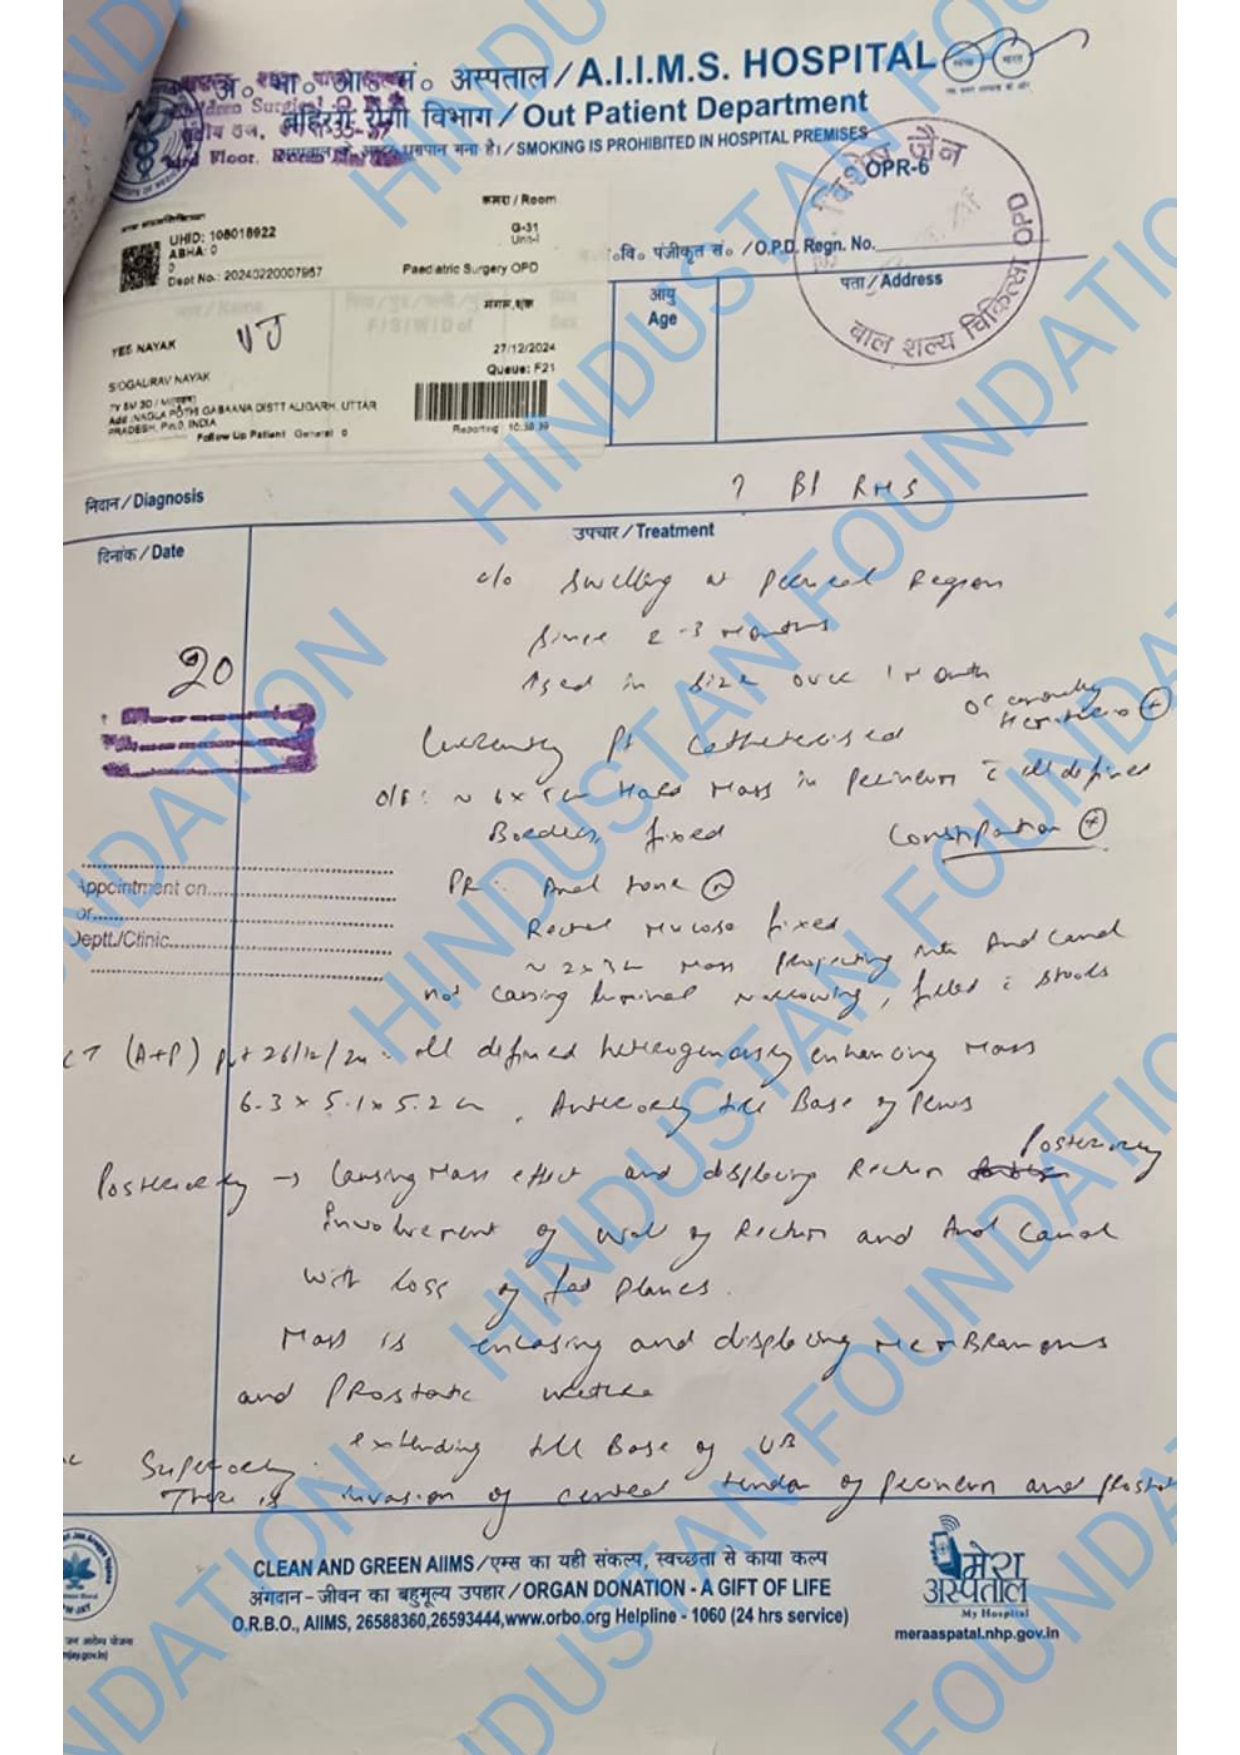 अ० भा० आ० सं० अस्पताल / A.I.I.M.S. HOSPITAL
बहिरंग रोगी विभाग / Out Patient Department
धूम्रपान मना है। / SMOKING IS PROHIBITED IN HOSPITAL PREMISES
OPR-6
कमरा / Room
G-31
Unit-I
UHID: 108018922
ABHA: 0
0
Dept No.: 20240220007957
Paediatric Surgery OPD
पंजीकृत सं० / O.P.D. Regn. No.
आयु
Age
पता / Address
बाल शल्य चिकित्सा OPD
YES NAYAK
S/O GAURAV NAYAK
27/12/2024
Queue: F21
Add: NAGLA POTHI GABAANA DISTT ALIGARH, UTTAR
PRADESH, INDIA
Follow Up Patient General 0
Reporting
निदान / Diagnosis
? BP RMS
दिनांक / Date
उपचार / Treatment
c/o swelling at perineal Region
since 2-3 months
in size over 1 month
20
occasionally
Currently Pt catheterised
O/E: ~ 6 x 5 cm Hard Mass in perineum c ill defined
Borders, fixed
Constipation +
PR: Anal tone N
Rectal mucosa fixed
~ 2x3 cm mass projecting into Anal Canal
not causing luminal narrowing, filled c stools
Appointment on
or
Deptt./Clinic
CT (A+P) 26/12/24: ill defined heterogenously enhancing Mass
6.3 x 5.1 x 5.2 cm, Anteriorly till Base of Penis
Posteriorly → Causing Mass effect and displacing Rectum Posteriorly
Involvement of wall of Rectum and Anal Canal
with loss of fat planes.
Mass is encasing and displacing membranous
and Prostatic urethra
Superiorly: extending till Base of UB
There is invasion of central tendon of perineum and
CLEAN AND GREEN AIIMS / एम्स का यही संकल्प, स्वच्छता से काया कल्प
अंगदान – जीवन का बहुमूल्य उपहार / ORGAN DONATION - A GIFT OF LIFE
O.R.B.O., AIIMS, 26588360,26593444,www.orbo.org Helpline - 1060 (24 hrs service)
मेरा
अस्पताल
My Hospital
meraaspatal.nhp.gov.in
HINDUSTAN FOUNDATION